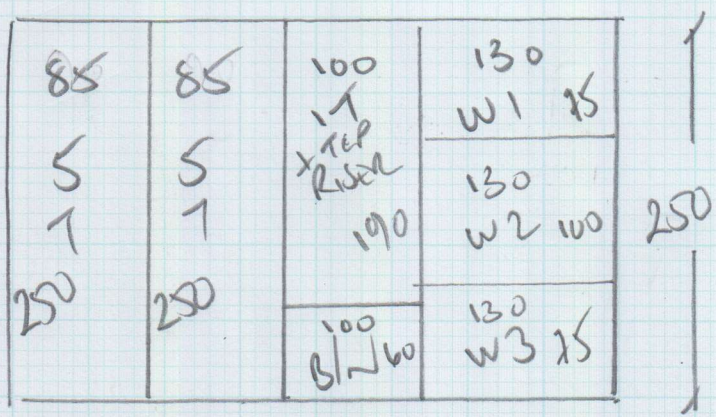 85
5
1
250
85
5
1
250
100
1T
STEP
RISER
190
100
BIN 60
130
W1 75
130
W2 100
130
W3 75
250